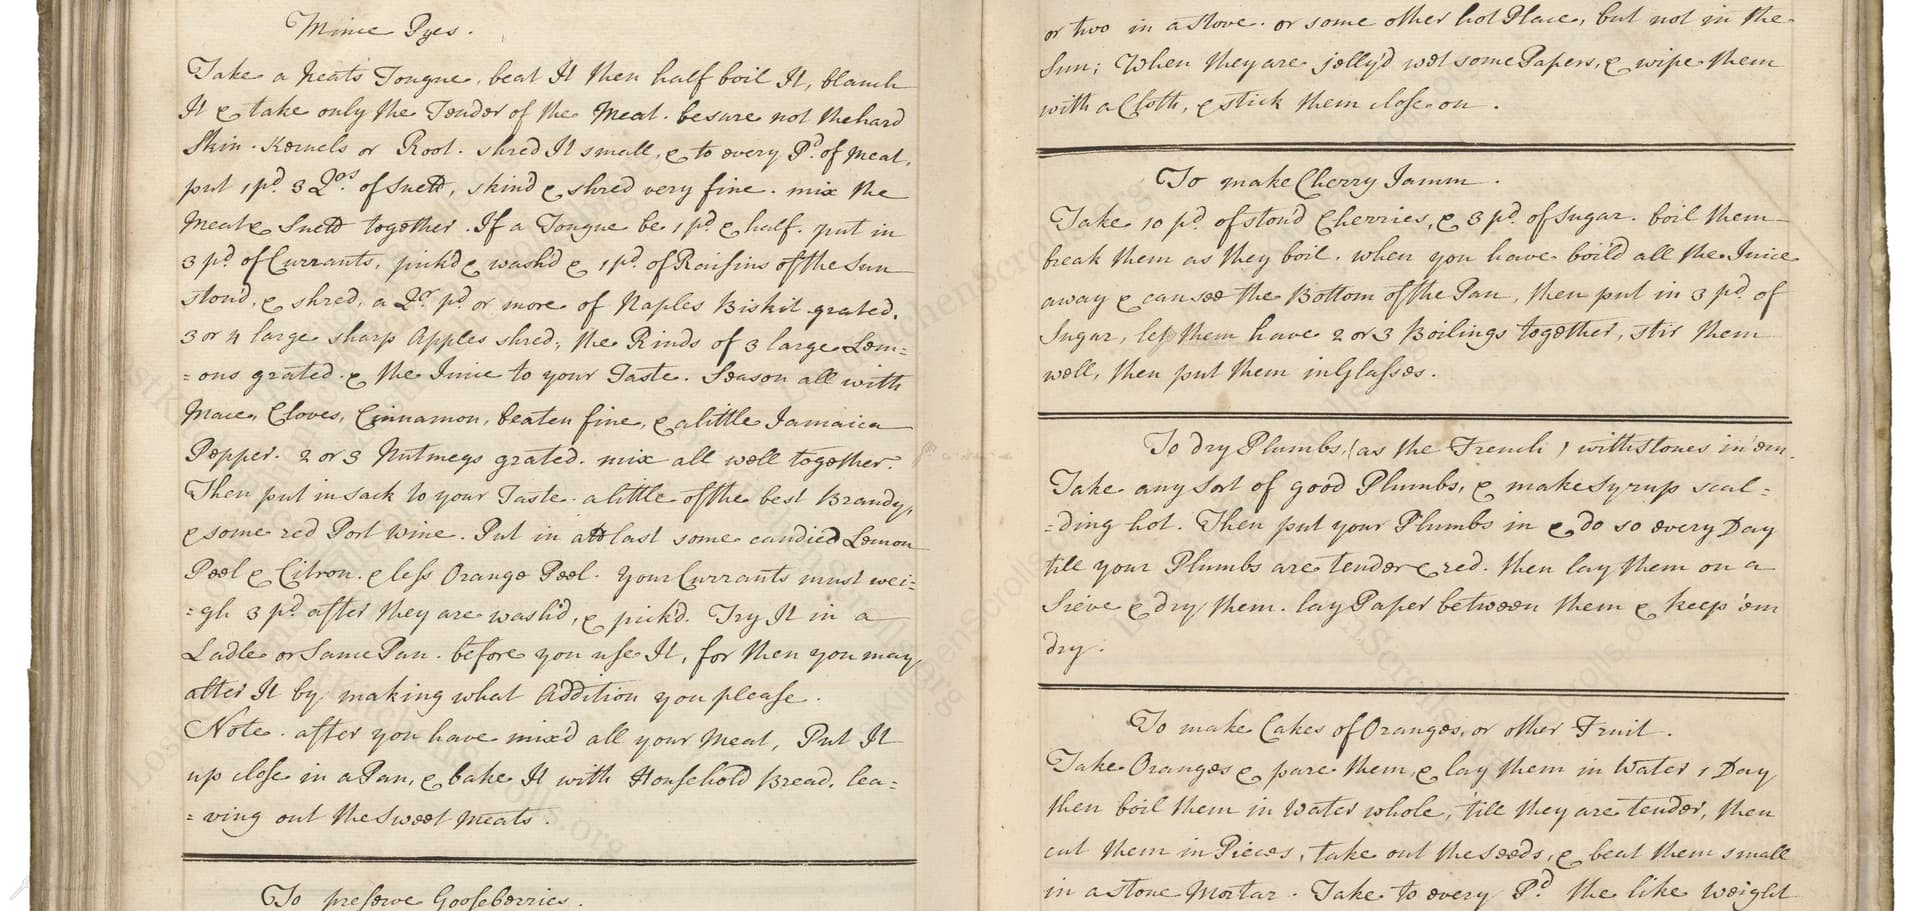 Mince Pyes.
Take a neats Tongue, beat It then half boil It, blanch
It & take only the Tender of the Meat. besure not the hard
Skin. Kernels or Root. shred It small, & to every Pd. of Meat,
put 1 pd. 3 Qos. of Suett, skind & shred very fine. mix the
Meat & Suett together. If a Tongue be 1 pd. & half. put in
3 pd. of Currants, pick'd & wash'd & 1 pd. of Raisins of the Sun
ston'd, & shred, a Qr. pd. or more of Naples Biskit grated.
3 or 4 large sharp Apples shred; the Rinds of 3 large Lem=
=ons grated. & the Juice to your Taste. Season all with
Mace, Cloves, Cinnamon, beaten fine, & a little Jamaica
Pepper. 2 or 3 Nutmegs grated. mix all well together.
Then put in sack to your Taste. a little of the best Brandy,
& some red Port Wine. Put in att last some candied Lemon
Peel & Citron. & less Orange Peel. Your Currants must wei=
=gh 3 pd. after they are wash'd, & pick'd. Try It in a
Ladle or Same Pan. before you use It, for then you may
alter It by making what Addition you please.
Note. after you have mix'd all your Meat, Put It
up close in a Pan, & bake It with Household Bread. lea=
=ving out the Sweet Meats.
To preserve Gooseberries.
or two in a stove. or some other hot Place, but not in the
Sun; When they are jelly'd wet some Papers, & wipe them
with a Cloth, & stick them close on.
To make Cherry Jamm.
Take 10 pd. of ston'd Cherries, & 3 pd. of Sugar. boil them
break them as they boil. when you have boil'd all the Juice
away & can see the Bottom of the Pan, then put in 3 pd. of
Sugar, let them have 2 or 3 Boilings together, stir them
well, then put them in Glasses.
To dry Plumbs, (as the French) with Stones in 'em.
Take any sort of good Plumbs, & make Syrup scal=
=ding hot. Then put your Plumbs in & do so every Day
till your Plumbs are tender & red. then lay them on a
Sieve & dry them. lay Paper between them & keep 'em
dry.
To make Cakes of Oranges, or other Fruit.
Take Oranges & pare them, & lay them in Water 1 Day
then boil them in Water whole, 'till they are tender, then
cut them in Pieces, take out the seeds, & beat them small
in a Stone Mortar. Take to every Pd. the like Weight